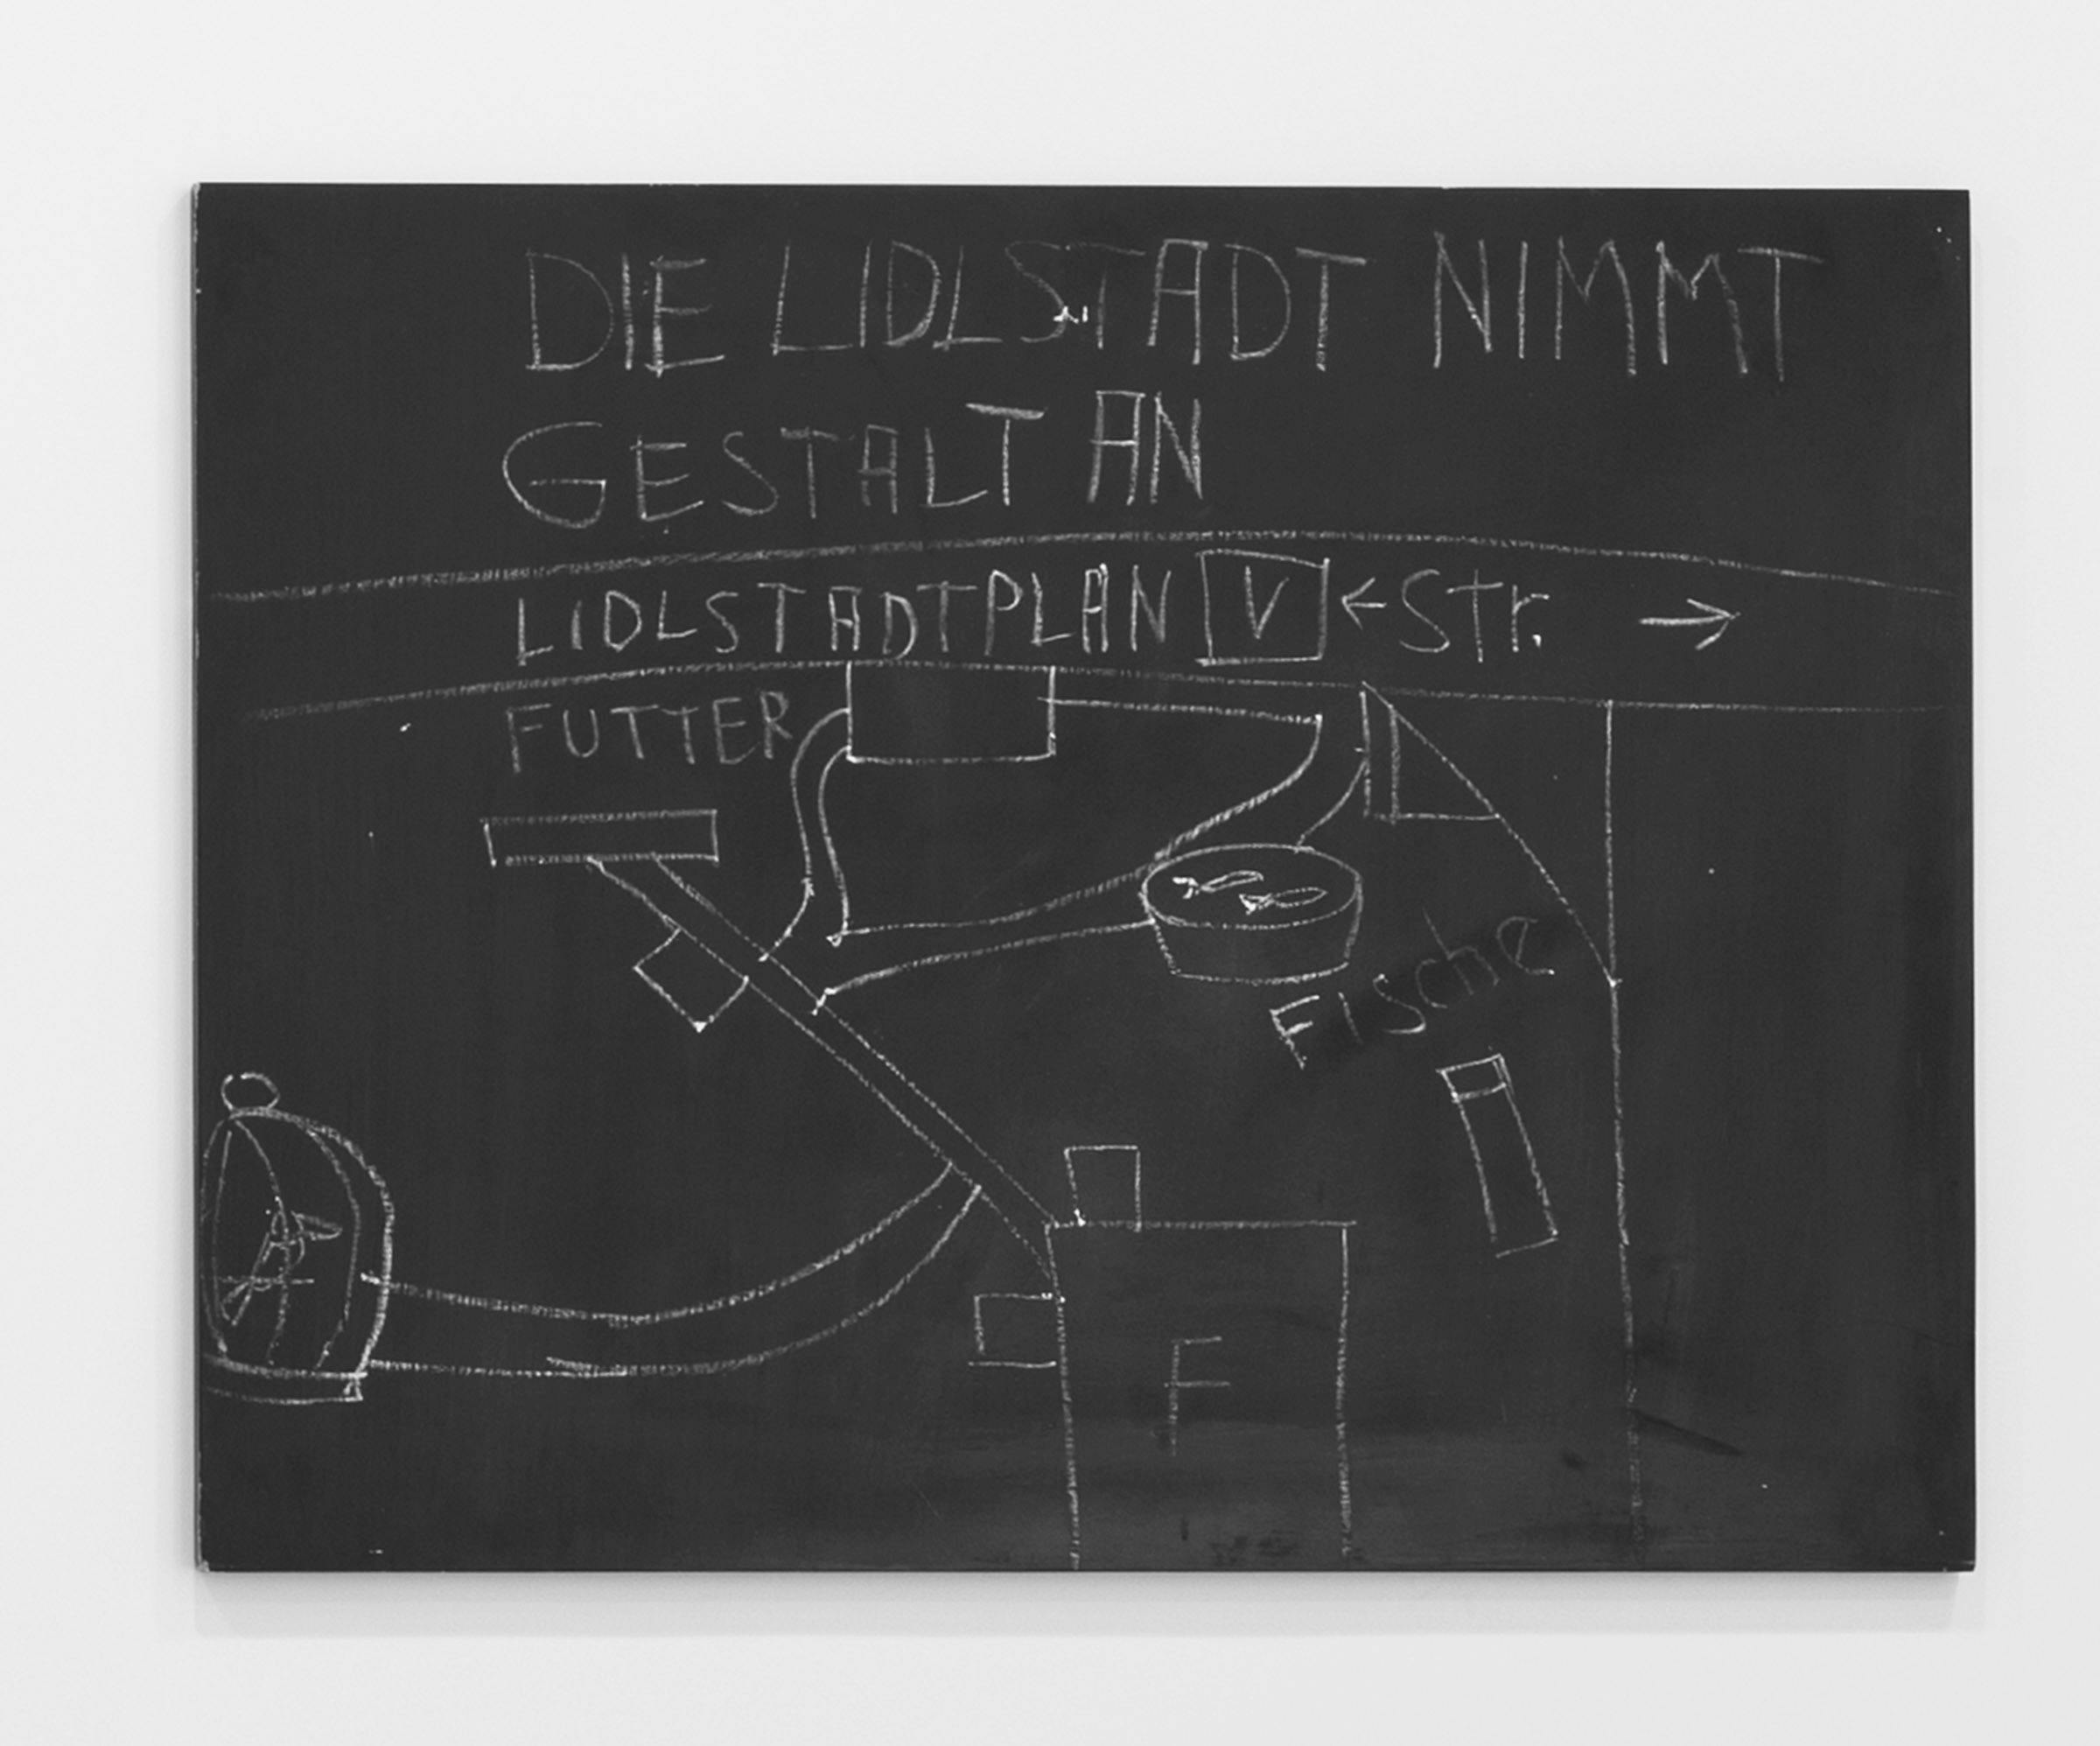 DIE LIDLSTADT NIMMT
GESTALT AN
LIDLSTADTPLAN V ← Str. →
FUTTER
Fische
F